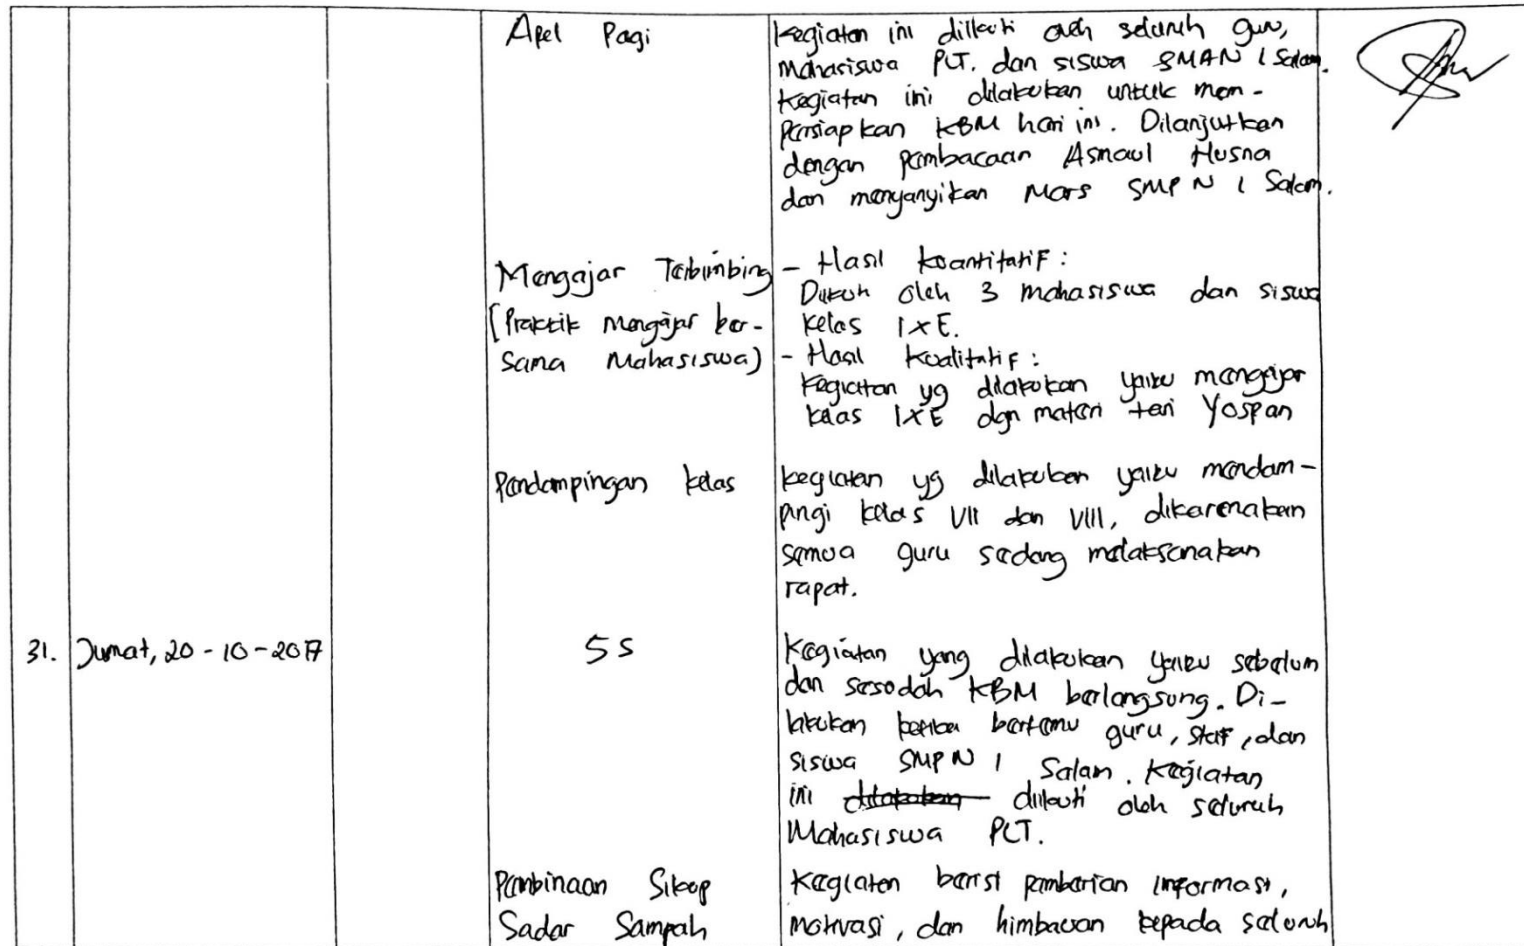 Apel Pagi
Kegiatan ini diikuti oleh seluruh guru,
Mahasiswa PLT. dan siswa SMAN 1 Salam.
Kegiatan ini dilakukan untuk mem-
persiapkan KBM hari ini. Dilanjutkan
dengan pembacaan Asmaul Husna
dan menyanyikan Mars SMP N 1 Salam.
Mengajar Terbimbing
[Praktik Mengajar ber-
sama Mahasiswa)
- Hasil Kuantitatif :
Diikuti oleh 3 mahasiswa dan siswa
Kelas IXE.
- Hasil Kualitatif :
Kegiatan yg dilakukan yaitu mengajar
kelas IXE dgn materi tari Yospan
Pendampingan kelas
Kegiatan yg dilakukan yaitu mendam-
pingi kelas VII dan VIII, dikarenakan
semua guru sedang melaksanakan
rapat.
31. Jumat, 20 - 10 - 2017
5 S
Kegiatan yang dilakukan yaitu sebelum
dan sesudah KBM berlangsung. Di-
lakukan ketika bertemu guru, staf, dan
siswa SMP N 1 Salam. Kegiatan
ini dilakukan diikuti oleh seluruh
Mahasiswa PLT.
Pembinaan Sikap
Sadar Sampah
Kegiatan berisi pemberian informasi,
motivasi, dan himbauan kepada seluruh